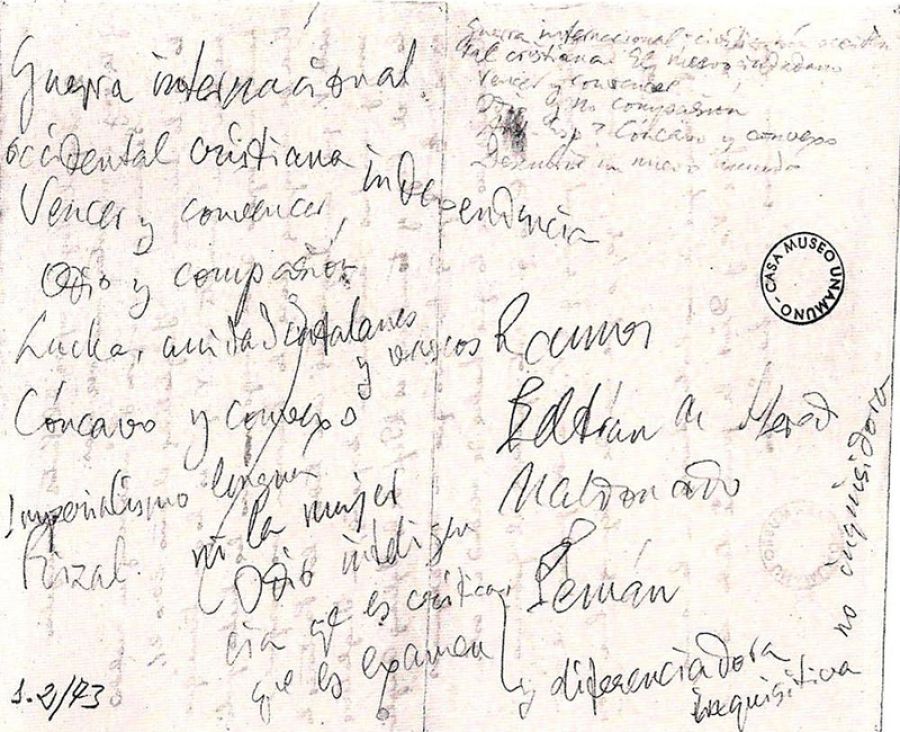 Guerra internacional
occidental cristiana
Vencer y convencer,
independencia
Odio y compasión
Lucha, unidad catalanes
y vascos
Cóncavo y convexo
Imperialismo lengua
Rizal. ni la mujer
Odio inteligen
cia que es crítica,
que es examen
y diferenciadora
inquisitiva
no inquisidora
1.2/73
Guerra internacional civilización occiden
tal cristiana
Vencer y convencer
Odio y no compasión
Cóncavo y convexo
Descubrir un nuevo mundo
CASA MUSEO UNAMUNO
Ramos
Beltrán de Hered
Maldonado
Pemán